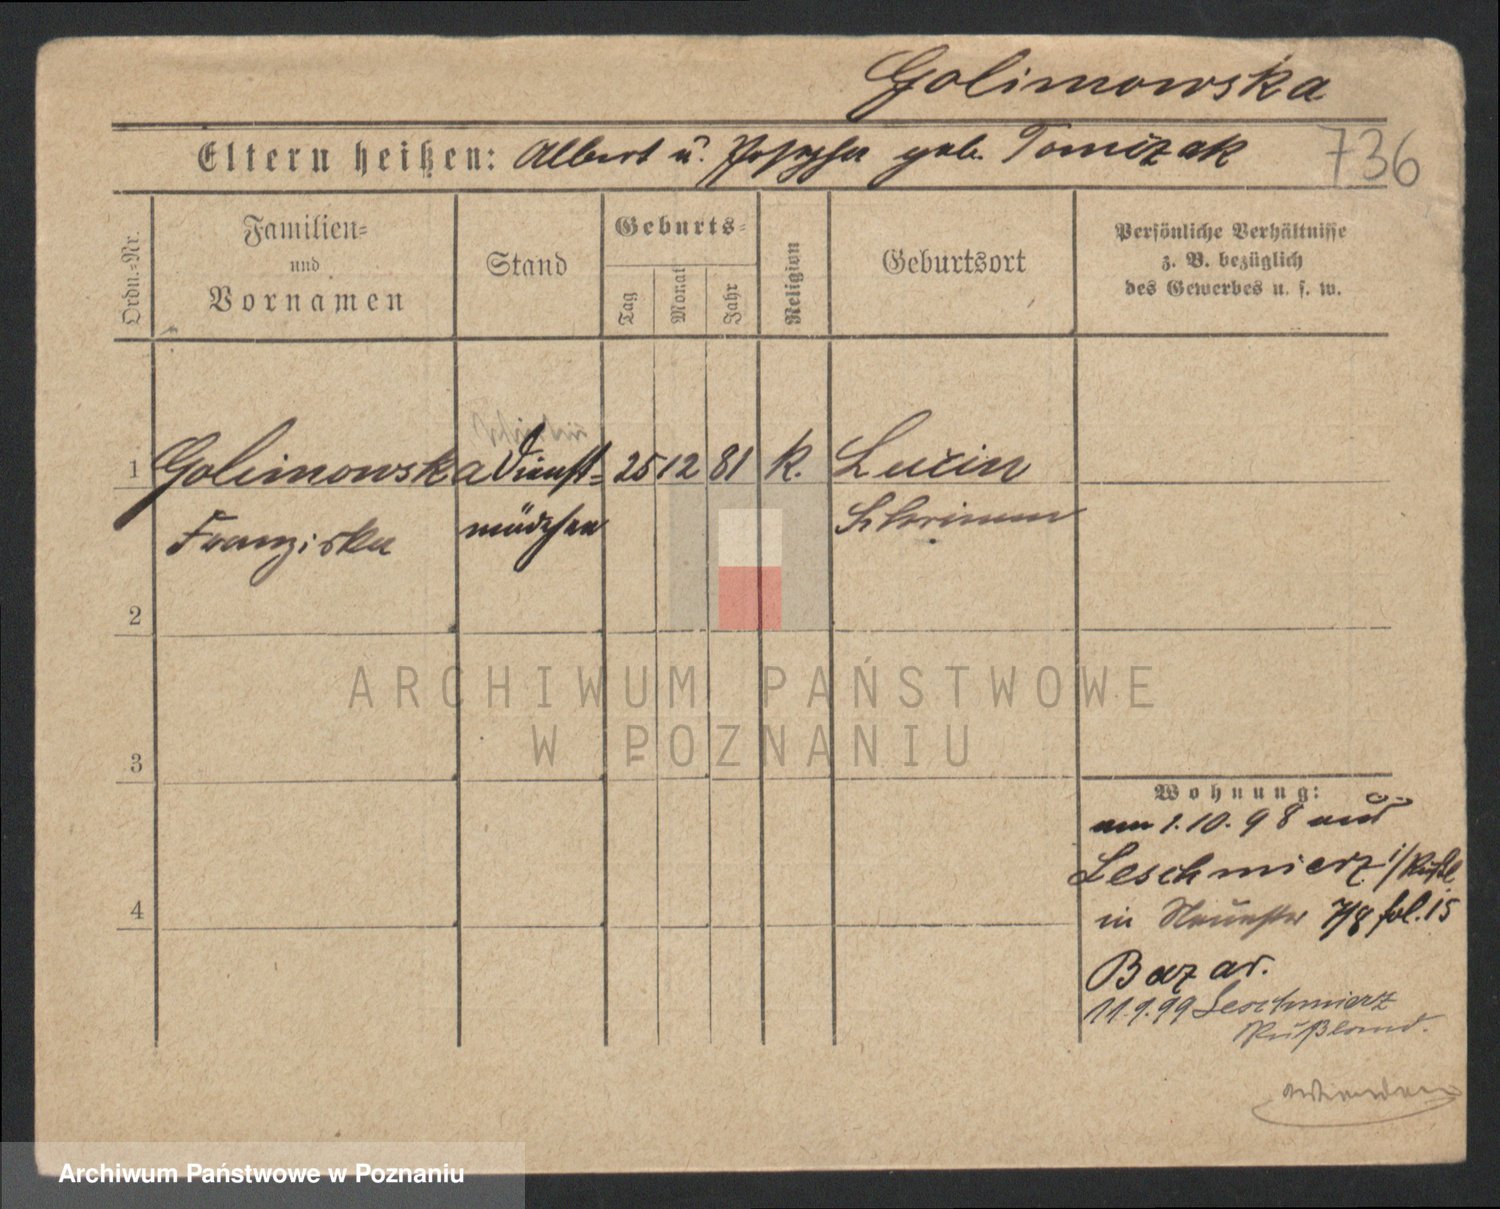 Golimowska
Eltern heißen: Albert u. Josepha geb. Tomczak
736
Ordn.-Nr.
Familien-
und
Vornamen
Stand
Geburts-
Tag
Monat
Jahr
Religion
Geburtsort
Persönliche Verhältnisse
z. B. bezüglich
des Gewerbes u. s. w.
1 Golimowska Dienst- 25 12 81 k. Lucin
Franziska mädchen Schrimm
2
ARCHIWUM PAŃSTWOWE
W POZNANIU
3
Wohnung:
am 1.10.98 aus
Leschmierz i/Rußl.
in 7/8 fol. 15
Bazar.
11.9.99 Leschmierz
Rußland.
4
Archiwum Państwowe w Poznaniu